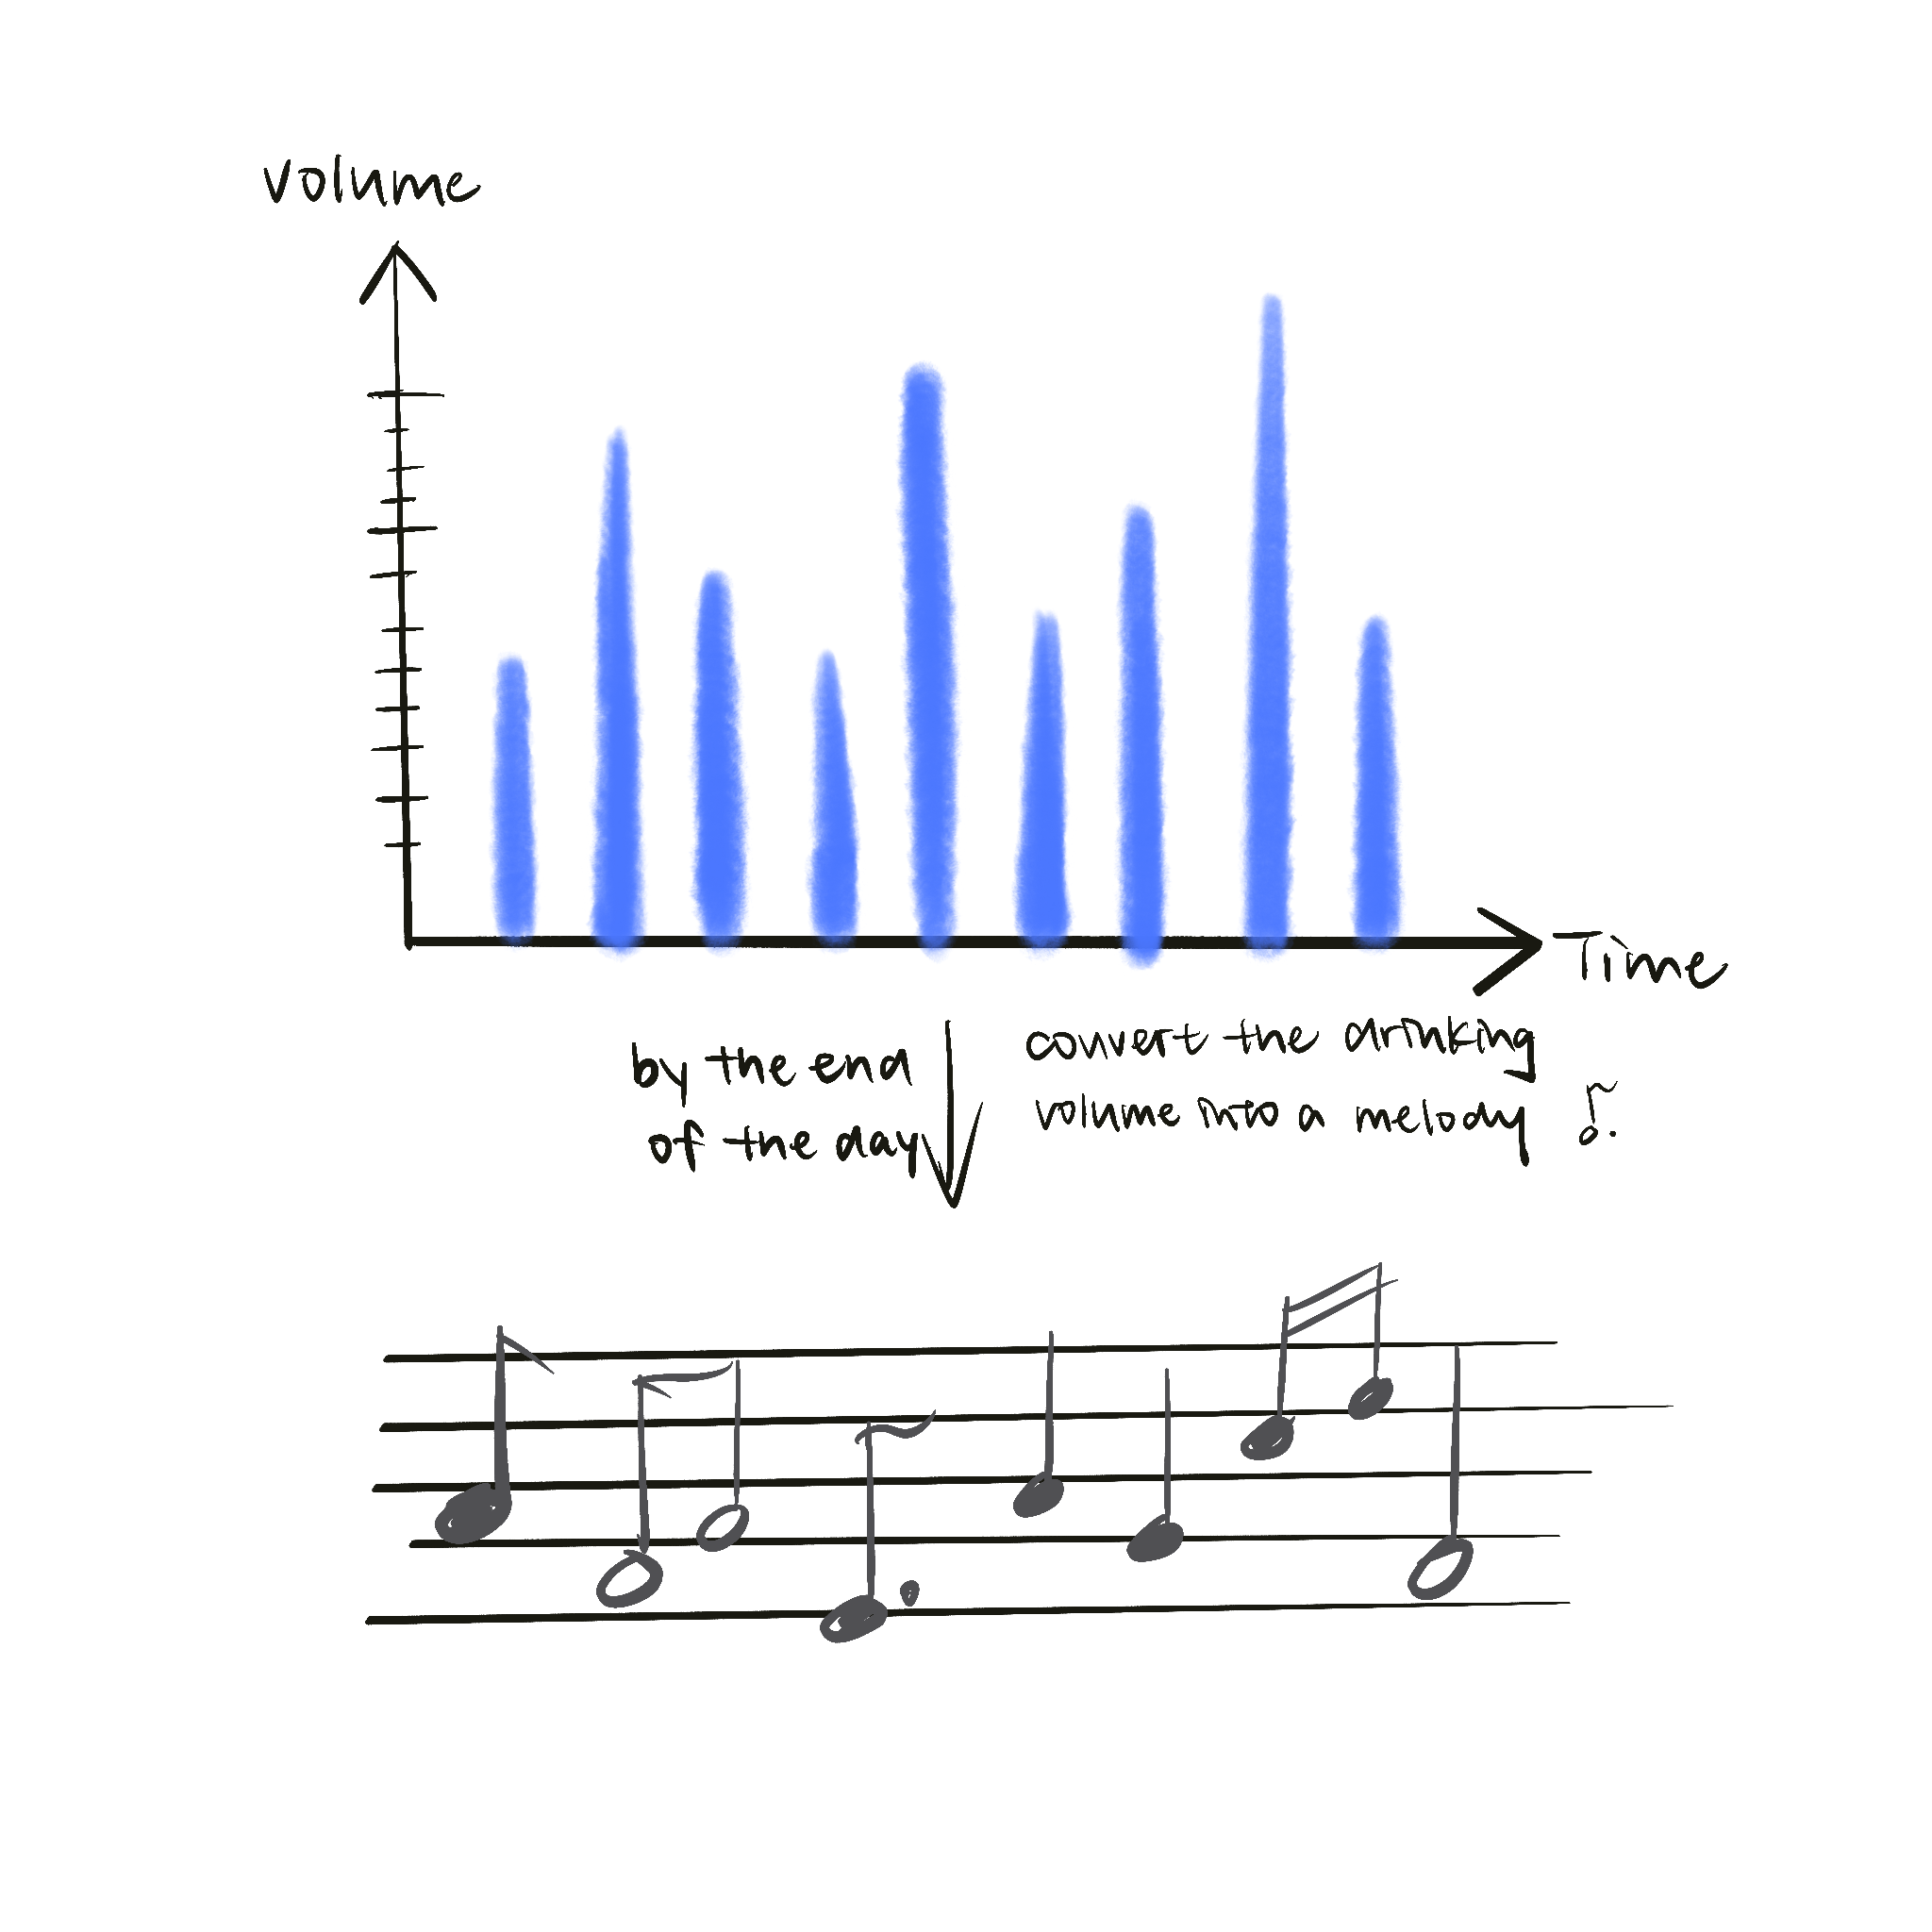 Volume
Time
by the end
of the day
convert the drinking
volume into a melody